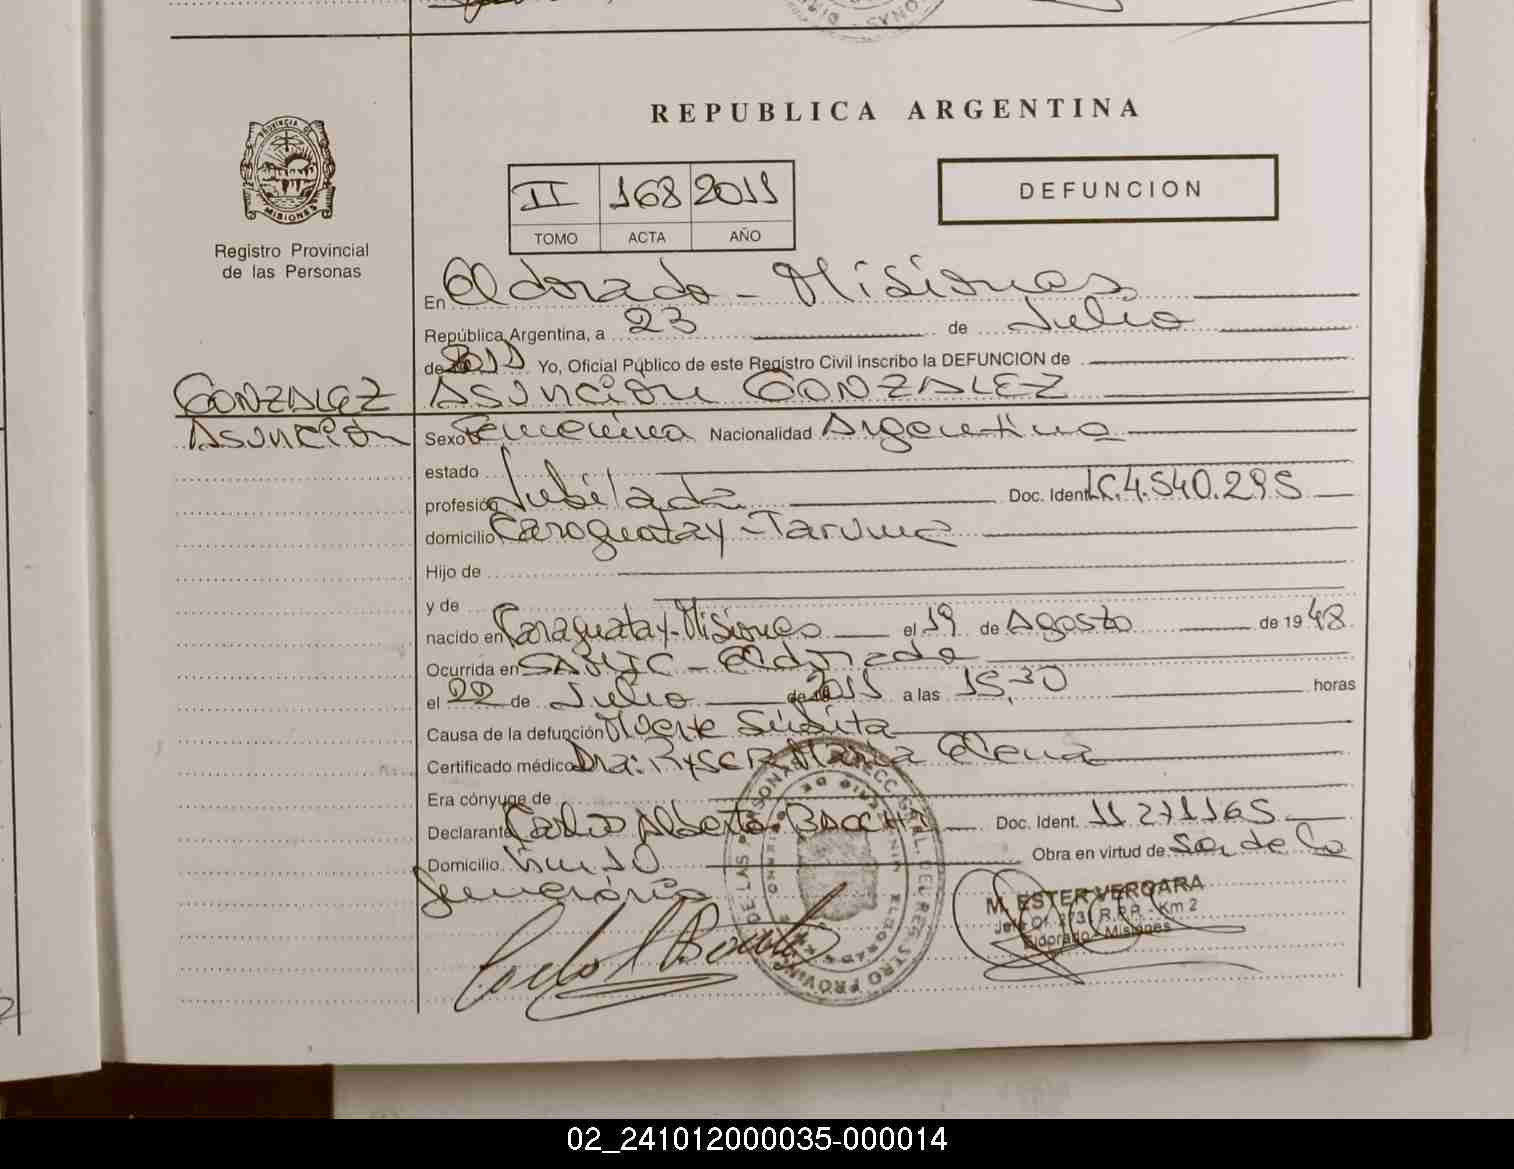 REPUBLICA ARGENTINA
PROVINCIA DE
MISIONES
Registro Provincial
de las Personas
II 168 2011
TOMO ACTA AÑO
DEFUNCION
En Eldorado - Misiones
República Argentina, a 23 de Julio
de 2011 Yo, Oficial Público de este Registro Civil inscribo la DEFUNCION de
GONZALEZ
Asunción
Asunción GONZALEZ
Sexo Femenina Nacionalidad Argentina
estado
profesión Jubilada Doc. Ident. LC.4.540.295
domicilio Caraguatay - Taruma
Hijo de
y de
nacido en Caraguatay-Misiones el 19 de Agosto de 1948
Ocurrida en SAMIC - Eldorado
el 22 de Julio de 2011 a las 15,30 horas
Causa de la defunción Muerte Súbita
Certificado médico Dra: RYSER Maria Elena
Era cónyuge de
Declarante Carlos Alberto BACCHI Doc. Ident. 11.271165
Domicilio Km 10 Obra en virtud de Ser de la
funeraria
M. ESTER VERGARA
Jefe Of. 273 R.P.P. - Km 2
Eldorado - Misiones
02_241012000035-000014